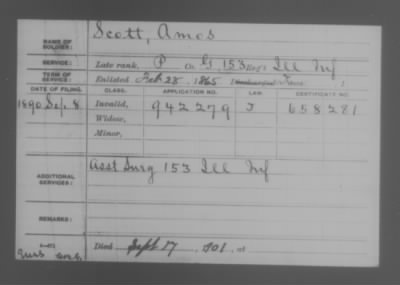 NAME OF SOLDIER: Scott, Amos
SERVICE: Late rank, P Co. G, 153 Reg't Ill Inf
TERM OF SERVICE: Enlisted Feb 28, 1865
DATE OF FILING. CLASS. APPLICATION NO. LAW. CERTIFICATE NO.
1890 Sep. 8 Invalid, 942279 J 658281
Widow,
Minor,
ADDITIONAL SERVICES: Asst Surg 153 Ill Inf
REMARKS:
Died Sept 17 1901, at